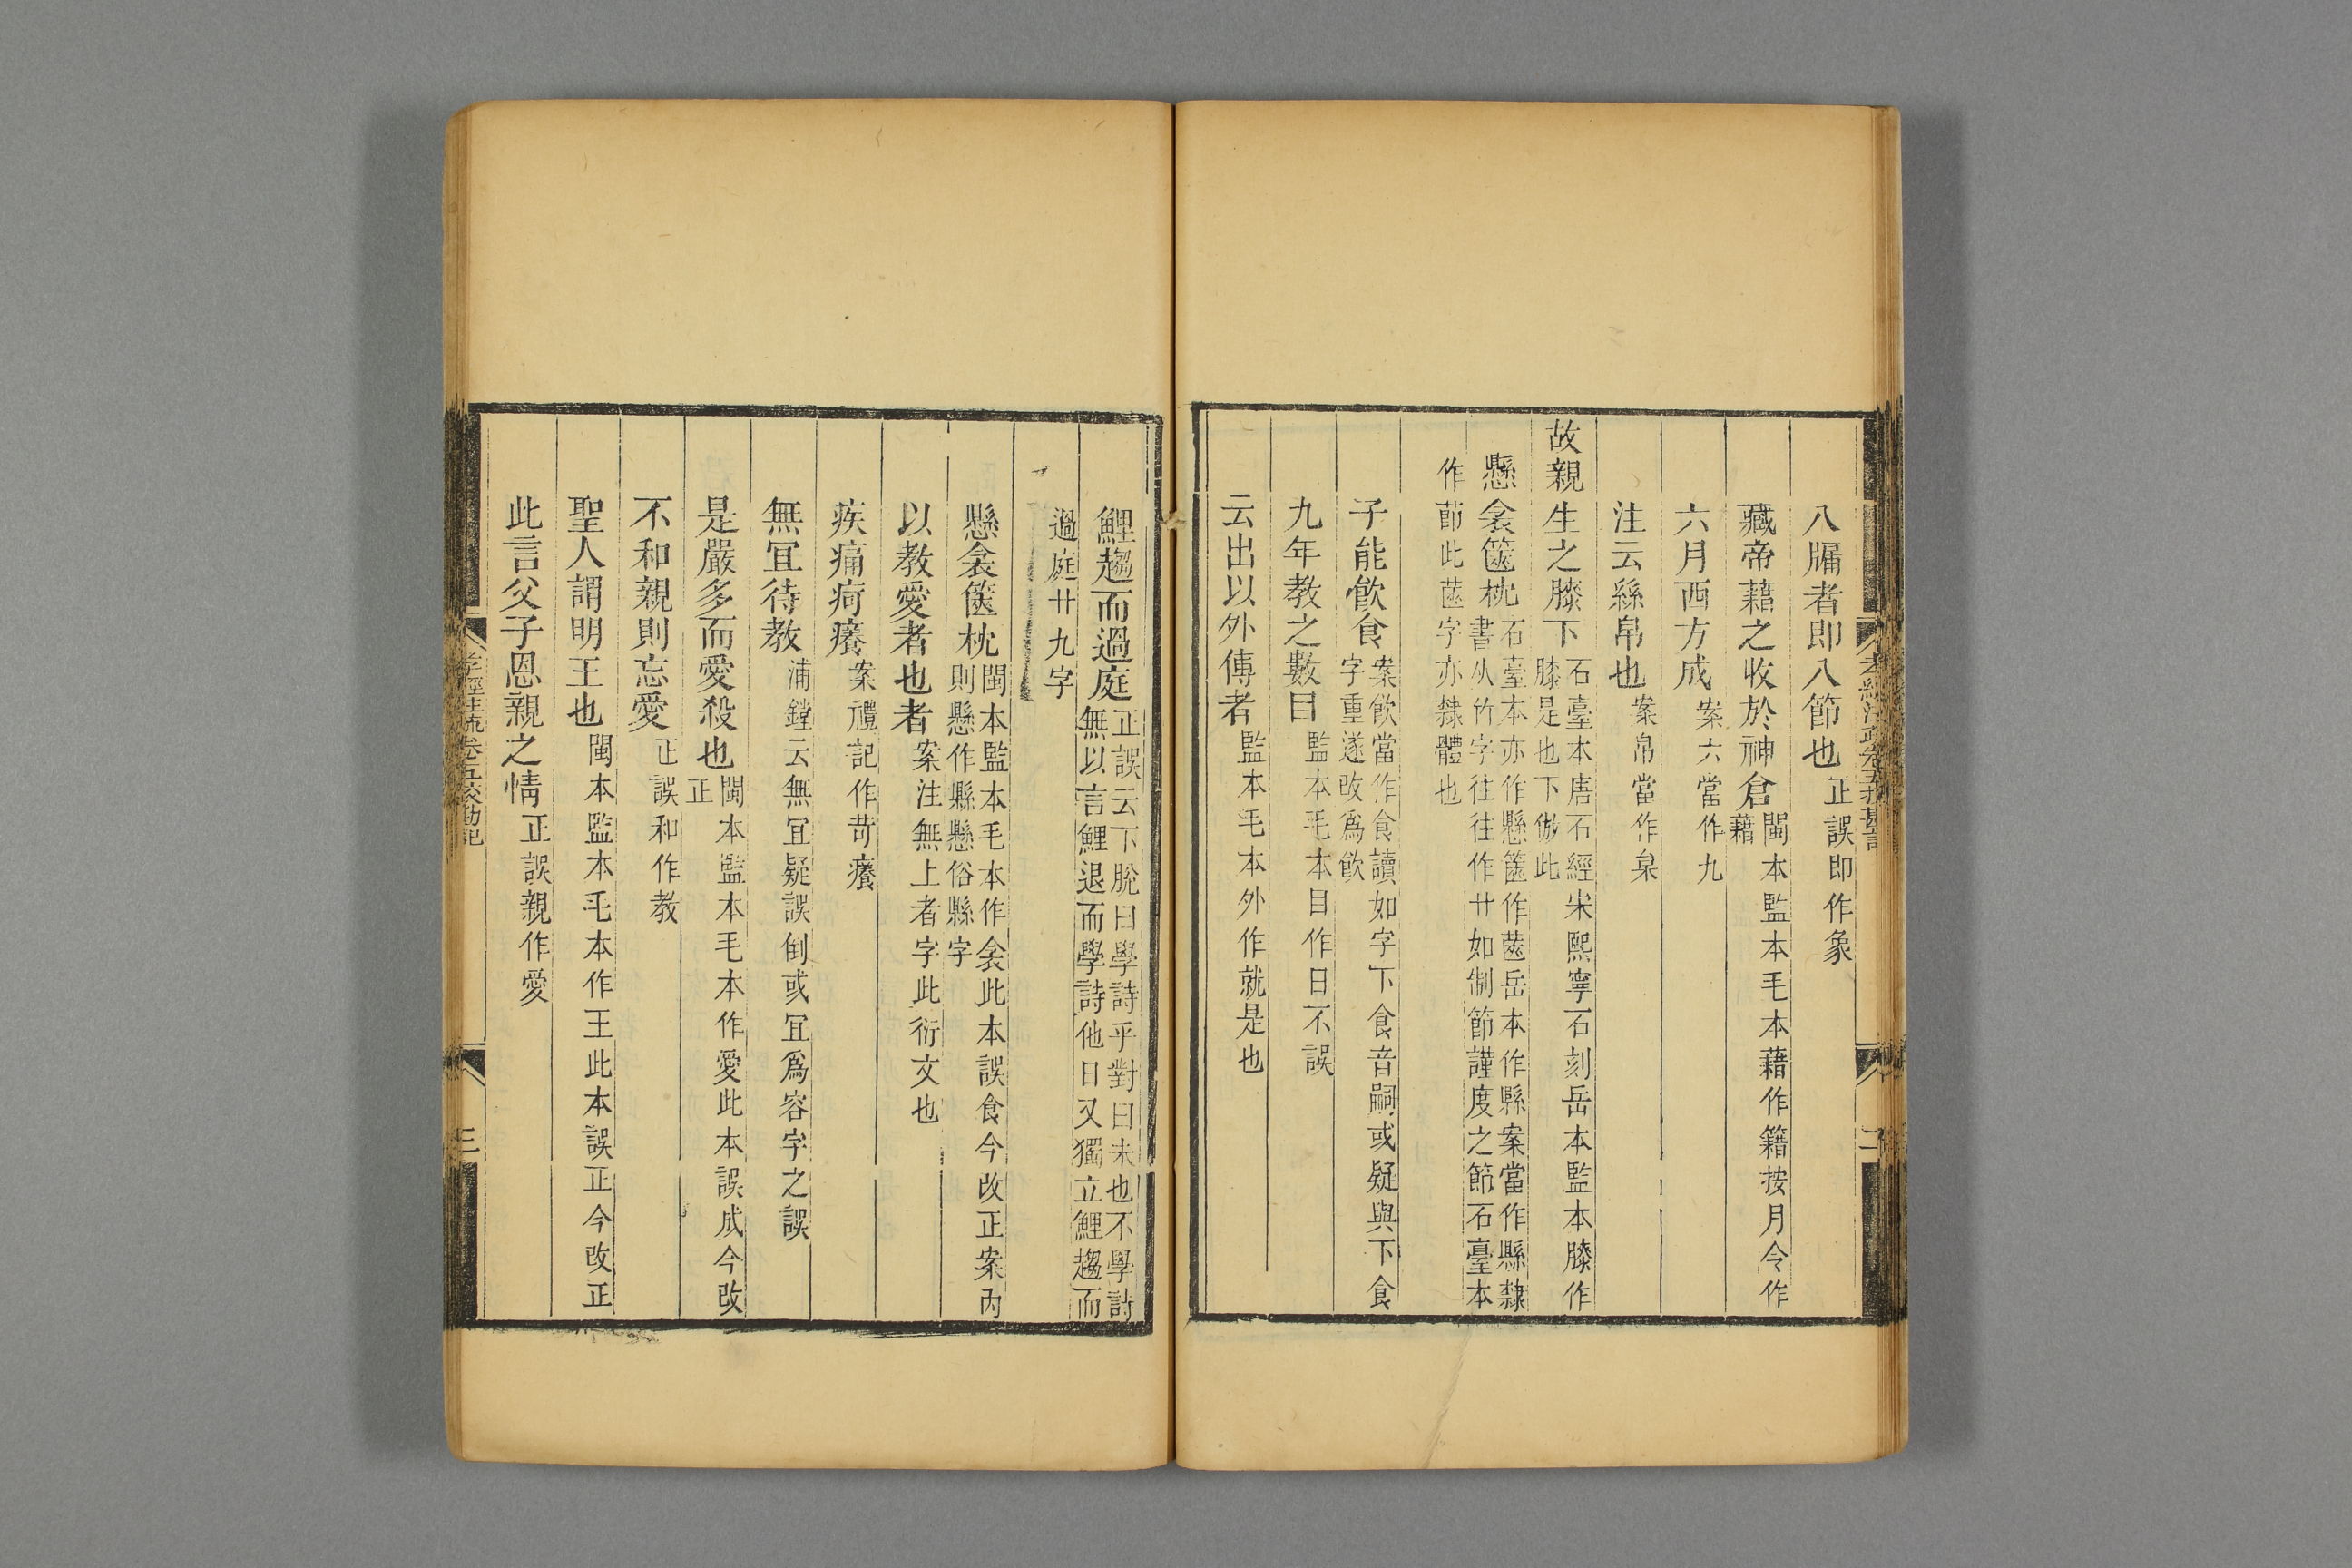 八牖者即八節也正誤即作象
藏帝藉之收於神倉閩本監本毛本藉作籍按月令作藉
六月西方成案六當作九
注云絲帛也案帛當作枲
故親生之膝下石臺本唐石經宋熙寧石刻岳本監本膝作膝是也下倣此
懸衾篋枕石臺本亦作懸篋作𦸈岳本作縣案當作縣隸書从竹字往往作廿如制節謹度之節石臺本
作莭此𦸈字亦隸體也
子能飲食案飲當作食讀如字下食音嗣或疑與下食字重遂改爲飲
九年教之數目監本毛本目作日不誤
云出以外傅者監本毛本外作就是也
孝經注疏卷五校勘記
二
鯉趨而過庭正誤云下脫曰學詩乎對曰未也不學詩無以言鯉退而學詩他日又獨立鯉趨而
過庭廿九字
懸衾篋枕閩本監本毛本作衾此本誤食今改正案內則懸作縣懸俗縣字
以教愛者也者案注無上者字此衍文也
疾痛疴癢案禮記作苛癢
無宜待教浦鏜云無宜疑誤倒或宜爲容字之誤
是嚴多而愛殺也閩本監本毛本作愛此本誤成今改正
不和親則忘愛正誤和作教
聖人謂明王也閩本監本毛本作王此本誤正今改正
此言父子恩親之情正誤親作愛
孝經注疏卷五校勘記
三